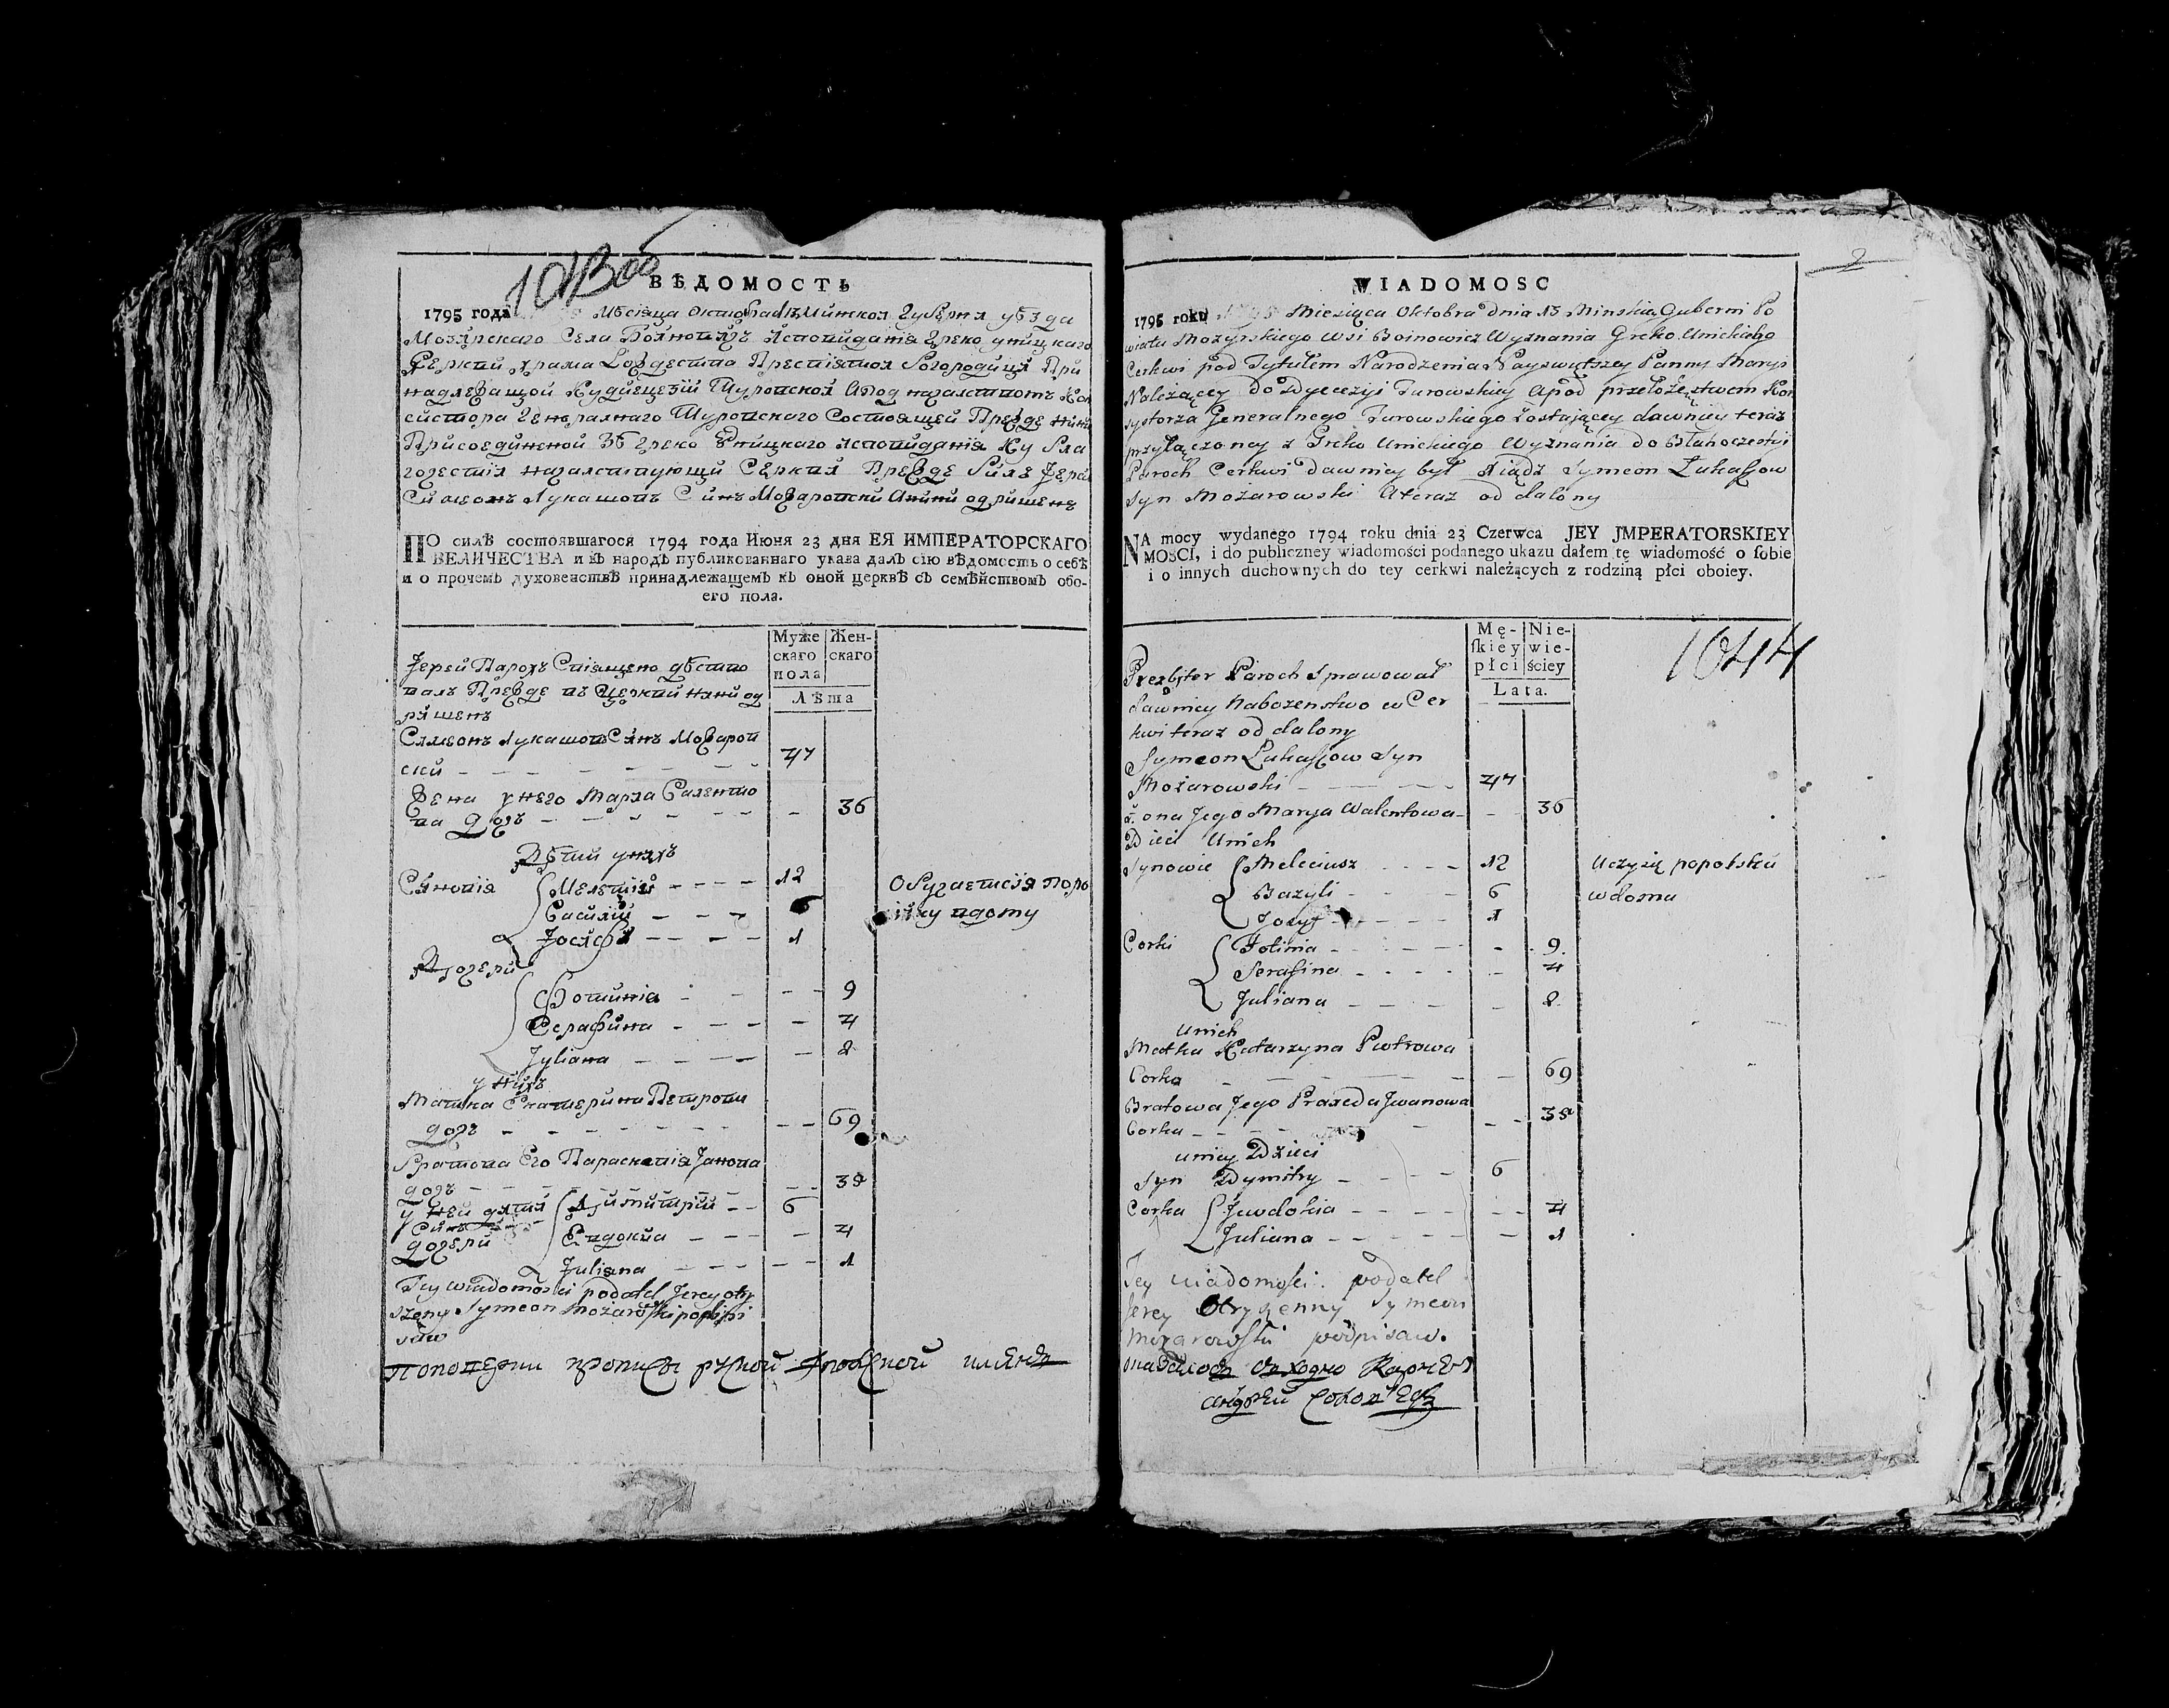 1043об
ВѢДОМОСТЬ
1795 года Мѣсяца Октобра 13 Минской Губерня уѣзда
Мозирского Села Воиновичъ Исповиданія Греко униацкаго
Церкви Храма Рождества Пресвятыя Богородиця При
надлежащой Кудиецезіи Туровской Апод началством Кон
систора Генералнаго Туровского Состоящей Прежде нини
Присоединеной Зъ Греко Униацкаго исповиданія Ку Бла
гочестія началствующи Церквя Прежде Билъ Іерей
Симеонъ Лукашовъ СинъМожаровски Анини одришенъ
ПО силѣ состоявшагося 1794 года Июня 23 дня ЕЯ ИМПЕРАТОРСКАГО
ВЕЛИЧЕСТВА и въ народъ публикованнаго указа далъ сію вѣдомость о себѣ
и о прочемъ духовенствѣ принадлежащемъ къ оной церквѣ съ семѣйствомъ обо-
его пола.
Муже скаго пола Жен- скаго
Лѣта
Іерей Парохъ Священо дѣство
валъ Прежде въ Церкви нини од
ришенъ
Симеонъ Лукашовъ Синъ Можаров
ски - - - 47
Жена у него Маря Валенто
ва дочъ - - - 36
Дѣти унихъ
Синовія Мелетій - - - 12 Обучаетсія поро
Василий - - - 6 сійску вдому
Іосифъ - - - 1
Дочери
Фотинія - - - 9
Серафина - - - 4
Іуliана - - - 2
у нихъ
Матка Екатерина Петрова
дочъ - - - 69
Братова Его Параскевія Іванова
дочъ - - - 38
у Ней дяти
Синъ Димитрій - - 6
дочери Евдокиа - - - 4
Juliana - - - 1
Tey wiadomości podatel Jerey otry
szony Symeon Możarowski podpisi
saw
WIADOMOSC
1795 roku Miesiąca Oktobra dnia 13 Minskiey Guberni Po
wiatu Mozyrskiego Wsi Boinowicz Wyznania Greko Unickiego
Cerkwi pod Tytułem Narodzenia Nayswiętszey Panny Maryi
Należącey do Dyecezyi Turowskiey Apod przełożęstwem Kon
systorza Generalnego Turowskiego Zostającey dawniey teraz
przyłączoney z Greko Unickiego Wyznania do Błahoczestyi
Paroch Cerkwi dawniey był Xiądz Symeon Łukaszow
Syn Możarowski Ateraz od dalony
NA mocy wydanego 1794 roku dnia 23 Czerwca JEY JMPERATORSKIEY
MOSCI, i do publiczney wiadomości podanego ukazu dałem tę wiadomość o sobie
i o innych duchownych do tey cerkwi należących z rodziną płci oboiey.
Mę- skiey płci Nie- wie- ściey
Lata.
1044
Prezbiter Paroch Sprawował
dawniey Nabozenstwo w Cer
kwi teraz od dalony
Symeon Łukaszow Syn
Możarowski - - - 47
Żona Jego Marya Walentowa - - 36
Dzieci Unich
Synowie Meleciusz - - - 12 Uczy się poposku
Bazyli - - - 6 w domu
Jozyf - - - 1
Corki Fotinia - - - 9.
Serafina - - - 4
Juliana - - - 2
Unich
Matka Katarzyna Piotrowa
Corka - - - 69
Bratowa Jego Praxeda Jwanowa
Corka - - - 38
uniey Dzieci
Syn Dymitry - - - 6
Corka Jewdokia - - - 4
Juliana - - - 1
Tey wiadomości podatel
Jerey Otryszenny Symeon
Możarowski podpisaw.